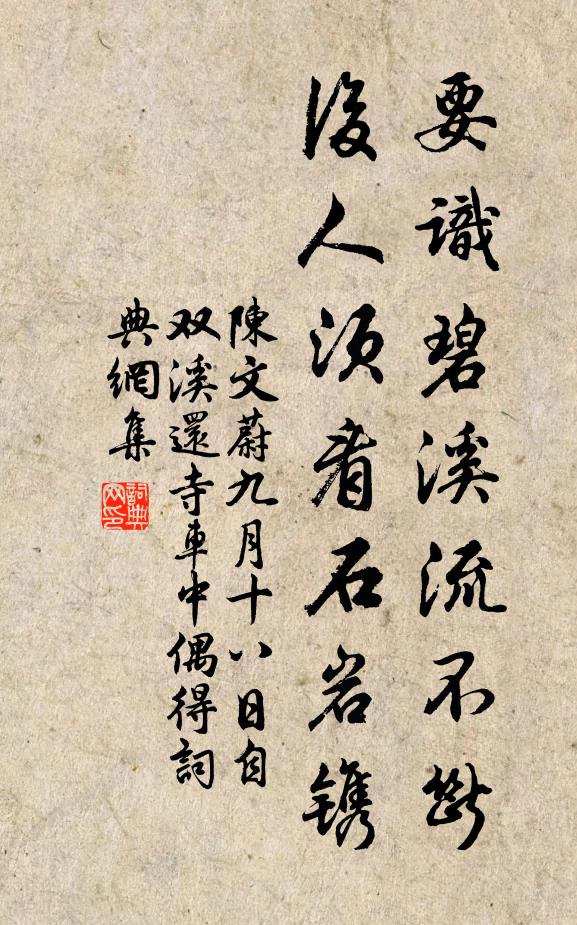 要識碧溪流不斷
後人須看石岩鐫
陳文蔚九月十八日自
双溪還寺車中偶得詞
典網集
詞典
网印